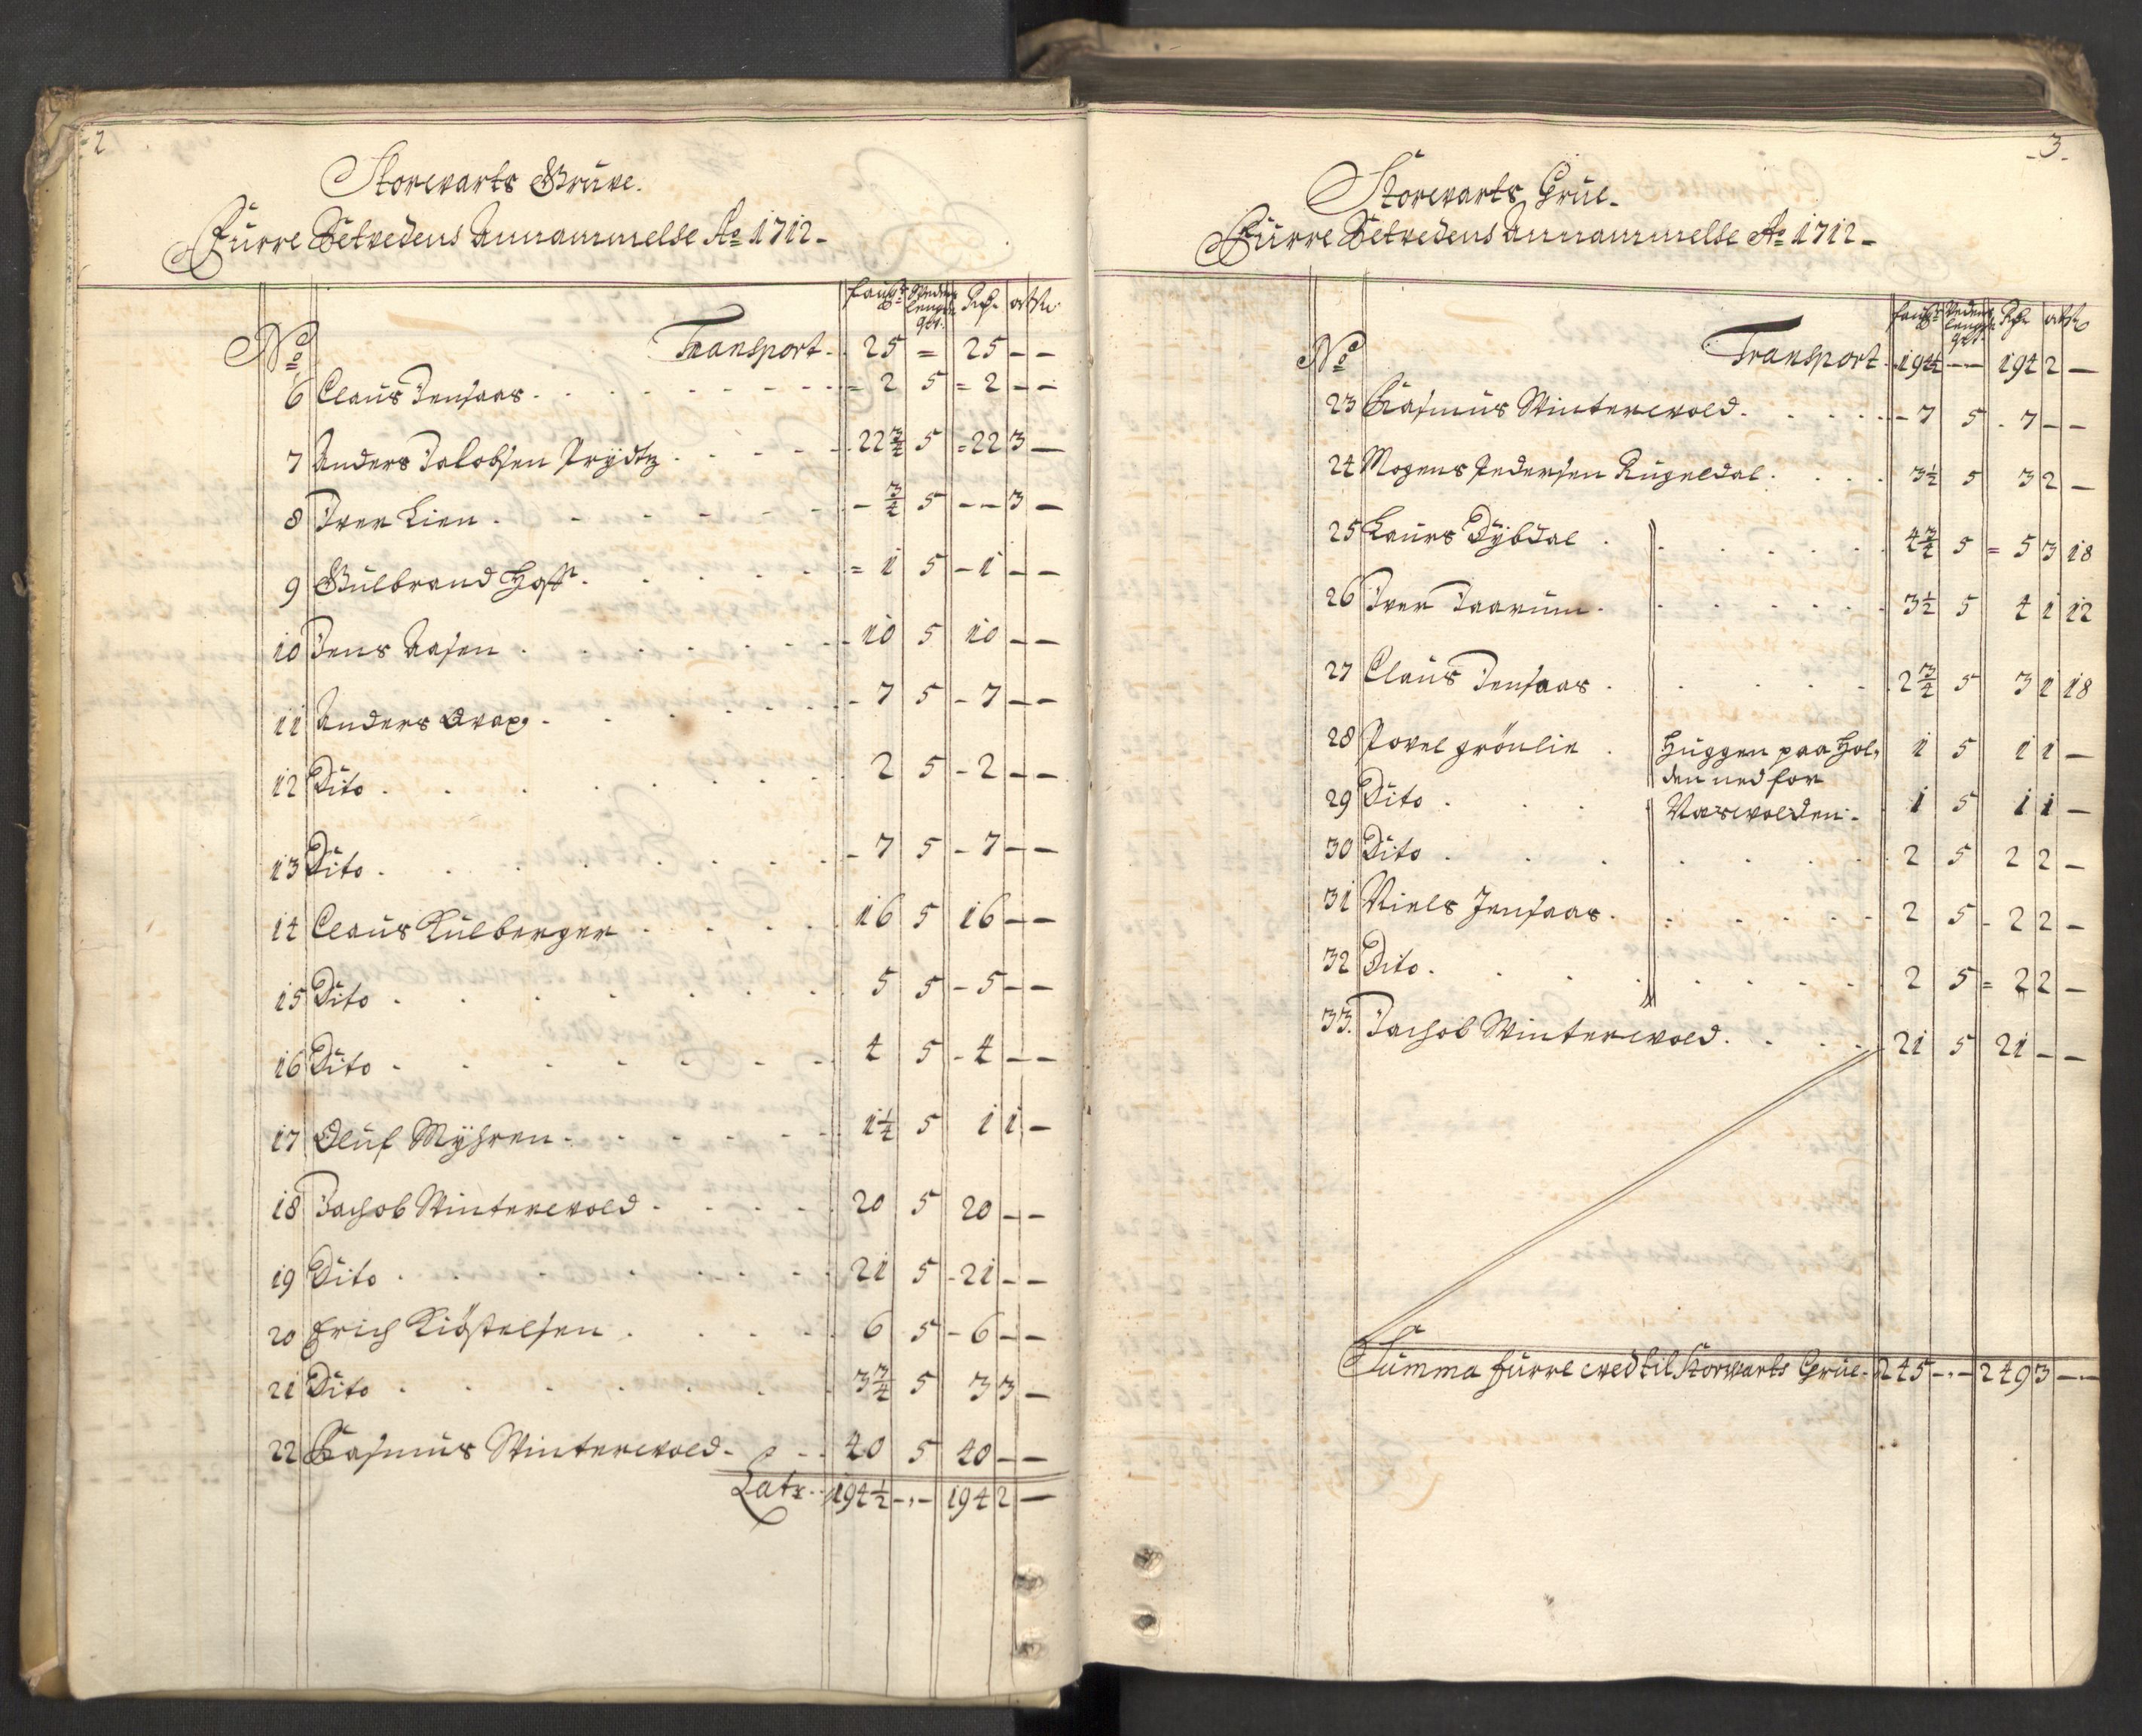 2
Storwarts Grüve.
Fürre Setvedens Annammelse Ao 1712-
No Transport. 25 = 25 - -
6 Claus Jensaas. = 2 5 = 2 - -
7 Anders Jacobsen Prydtz. 22 3/4 5 = 22 3 -
8 Iver Lien. - 3/4 5 - - 3 -
9 Gulbrand Hoff. = 1 5 - 1 - -
10 Jens Aasen. - 10 5 10 - -
11 Anders - 7 5 - 7 - -
12 Dito. 2 5 - 2 - -
13 Dito. - 7 5 - 7 - -
14 Claus Kulberger. 16 5 16 - -
15 Dito. 5 5 - 5 - -
16 Dito. 4 5 - 4 - -
17 Oluf Myhren. 1 1/4 5 1 1 -
18 Jachob Winterwold. 20 5 20 - -
19 Dito. 21 5 - 21 - -
20 Erich Kiöstelsen. 6 5 - 6 - -
21 Dito. 3 3/4 5 3 3 -
22 Rasmus Winterwold. 40 5 40 - -
Latr. 194 1/2 - 194 2 -
-3-
Storwarts Grue-
Fürre Setvedens Annammelse Ao 1712-
No Transport. 194 1/2 - - 194 2 -
23 Rasmus Winterwold. - 7 5 - 7 - -
24 Mogens Pedersen Rugeldal. 3 1/2 5 3 2 -
25 Laurs Dybdal. 4 3/4 5 = 5 3 18
26 Iver Taarum. 3 1/2 5 4 1 12
27 Claus Jensaas. 2 3/4 5 3 1 18
28 Povel grönlie. Huggen paa Hol- 1 5 1 1 -
den ned for
29 Dito. Vaswolden. 1 5 1 1 -
30 Dito. 2 5 2 2 -
31 Niels Jensaas. 2 5 - 2 2 -
32 Dito. 2 5 = 2 2 -
33. Jachob Winterwold. 21 5 21 - -
Summa fürre wed til Storwarts Grue. 245 - 249 3 -